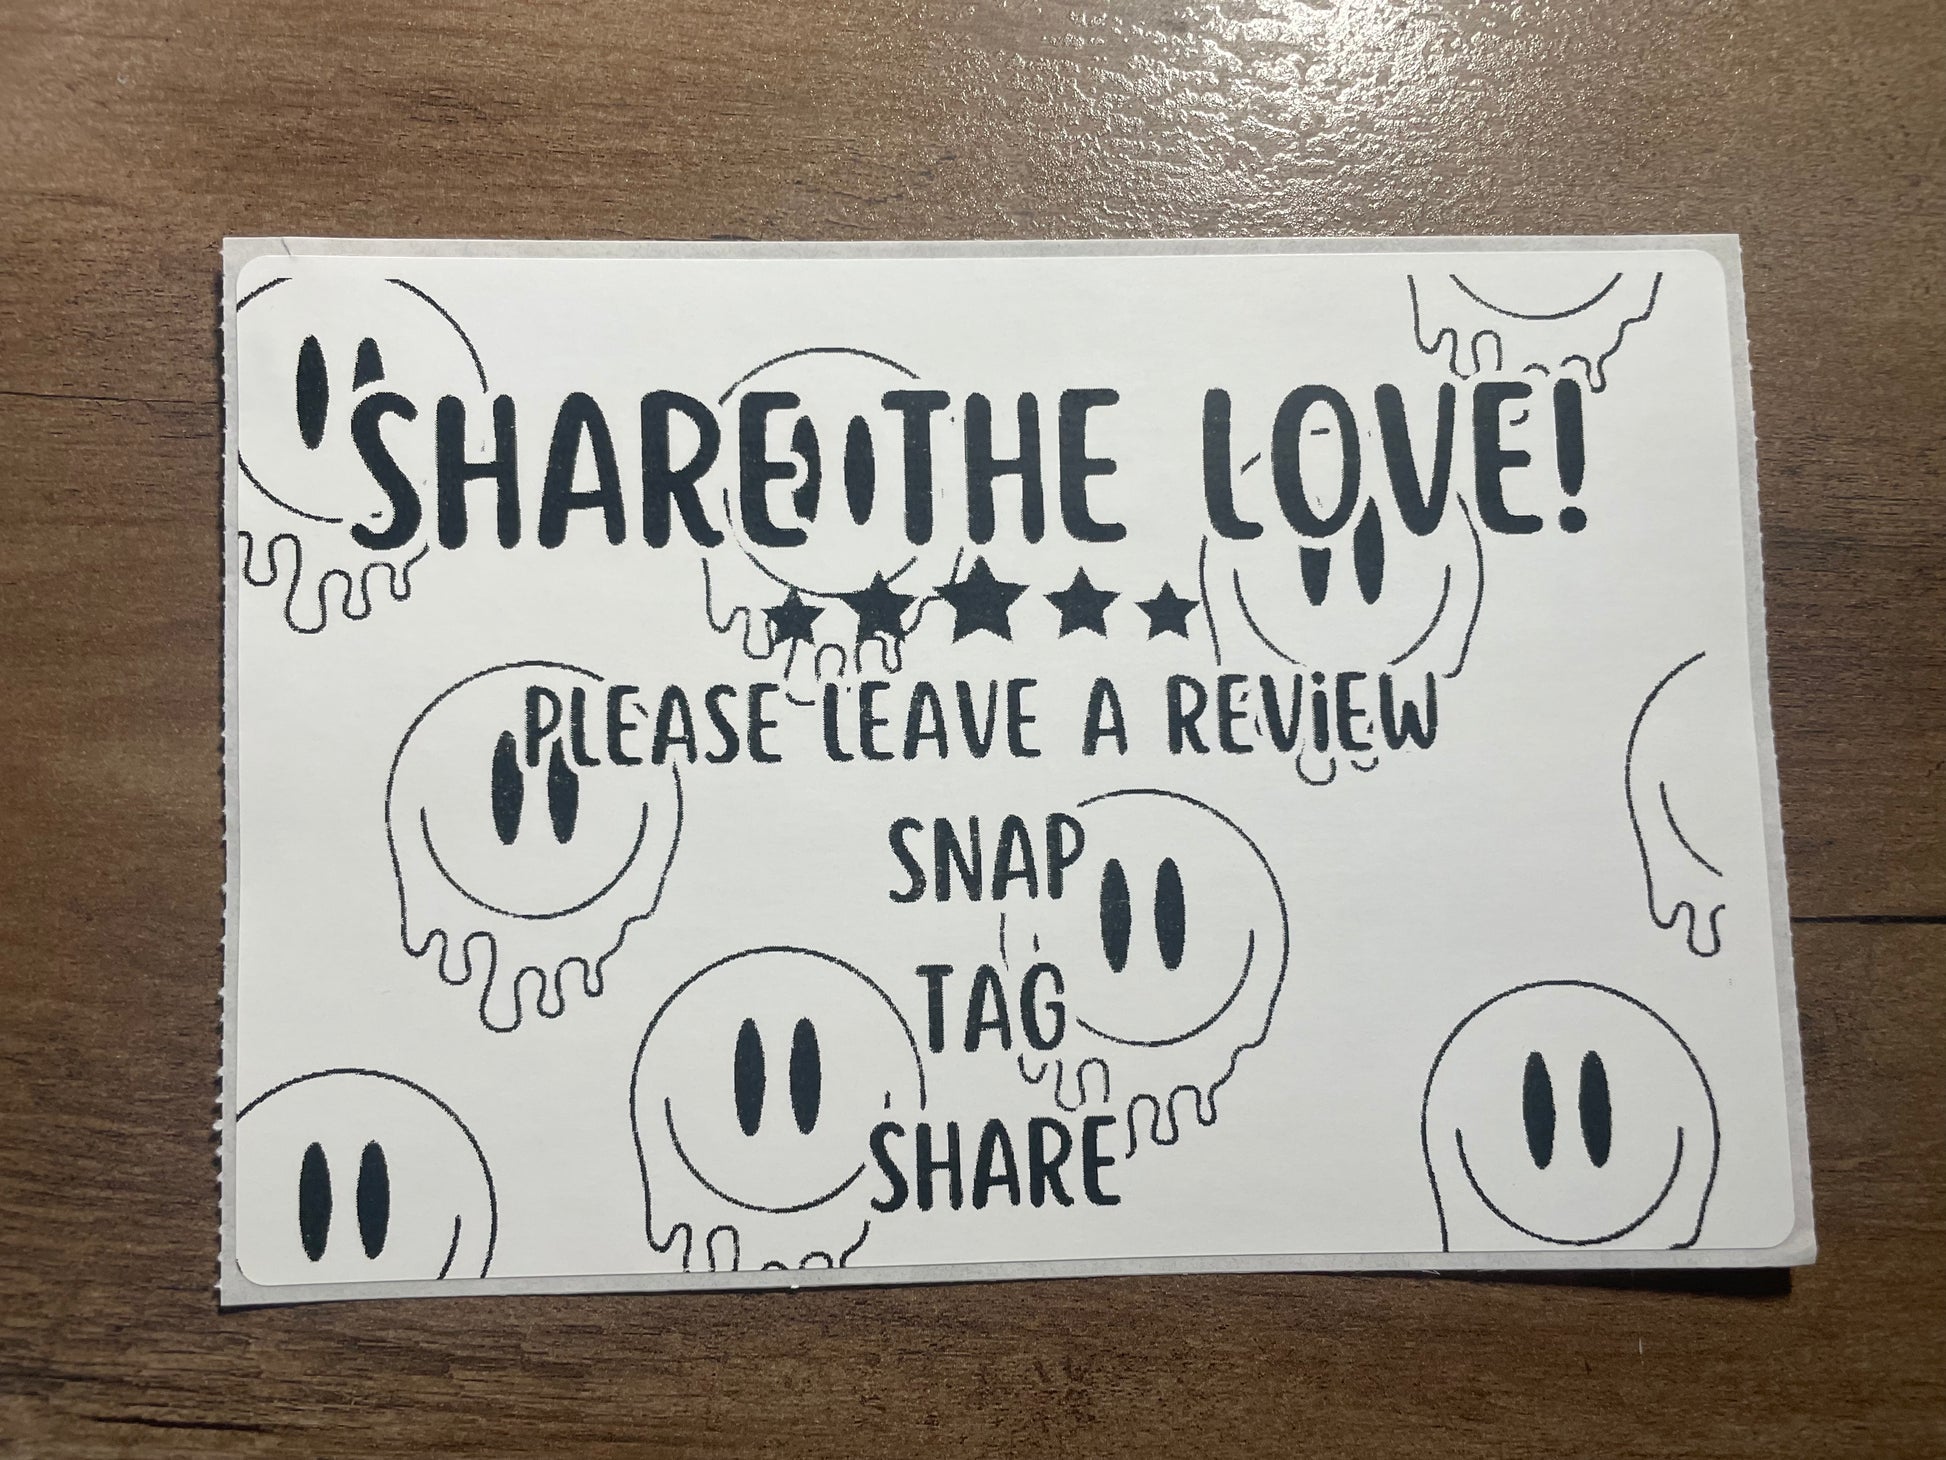 SHARE THE LOVE!
PLEASE LEAVE A REViEW
SNAP
TAG
SHARE